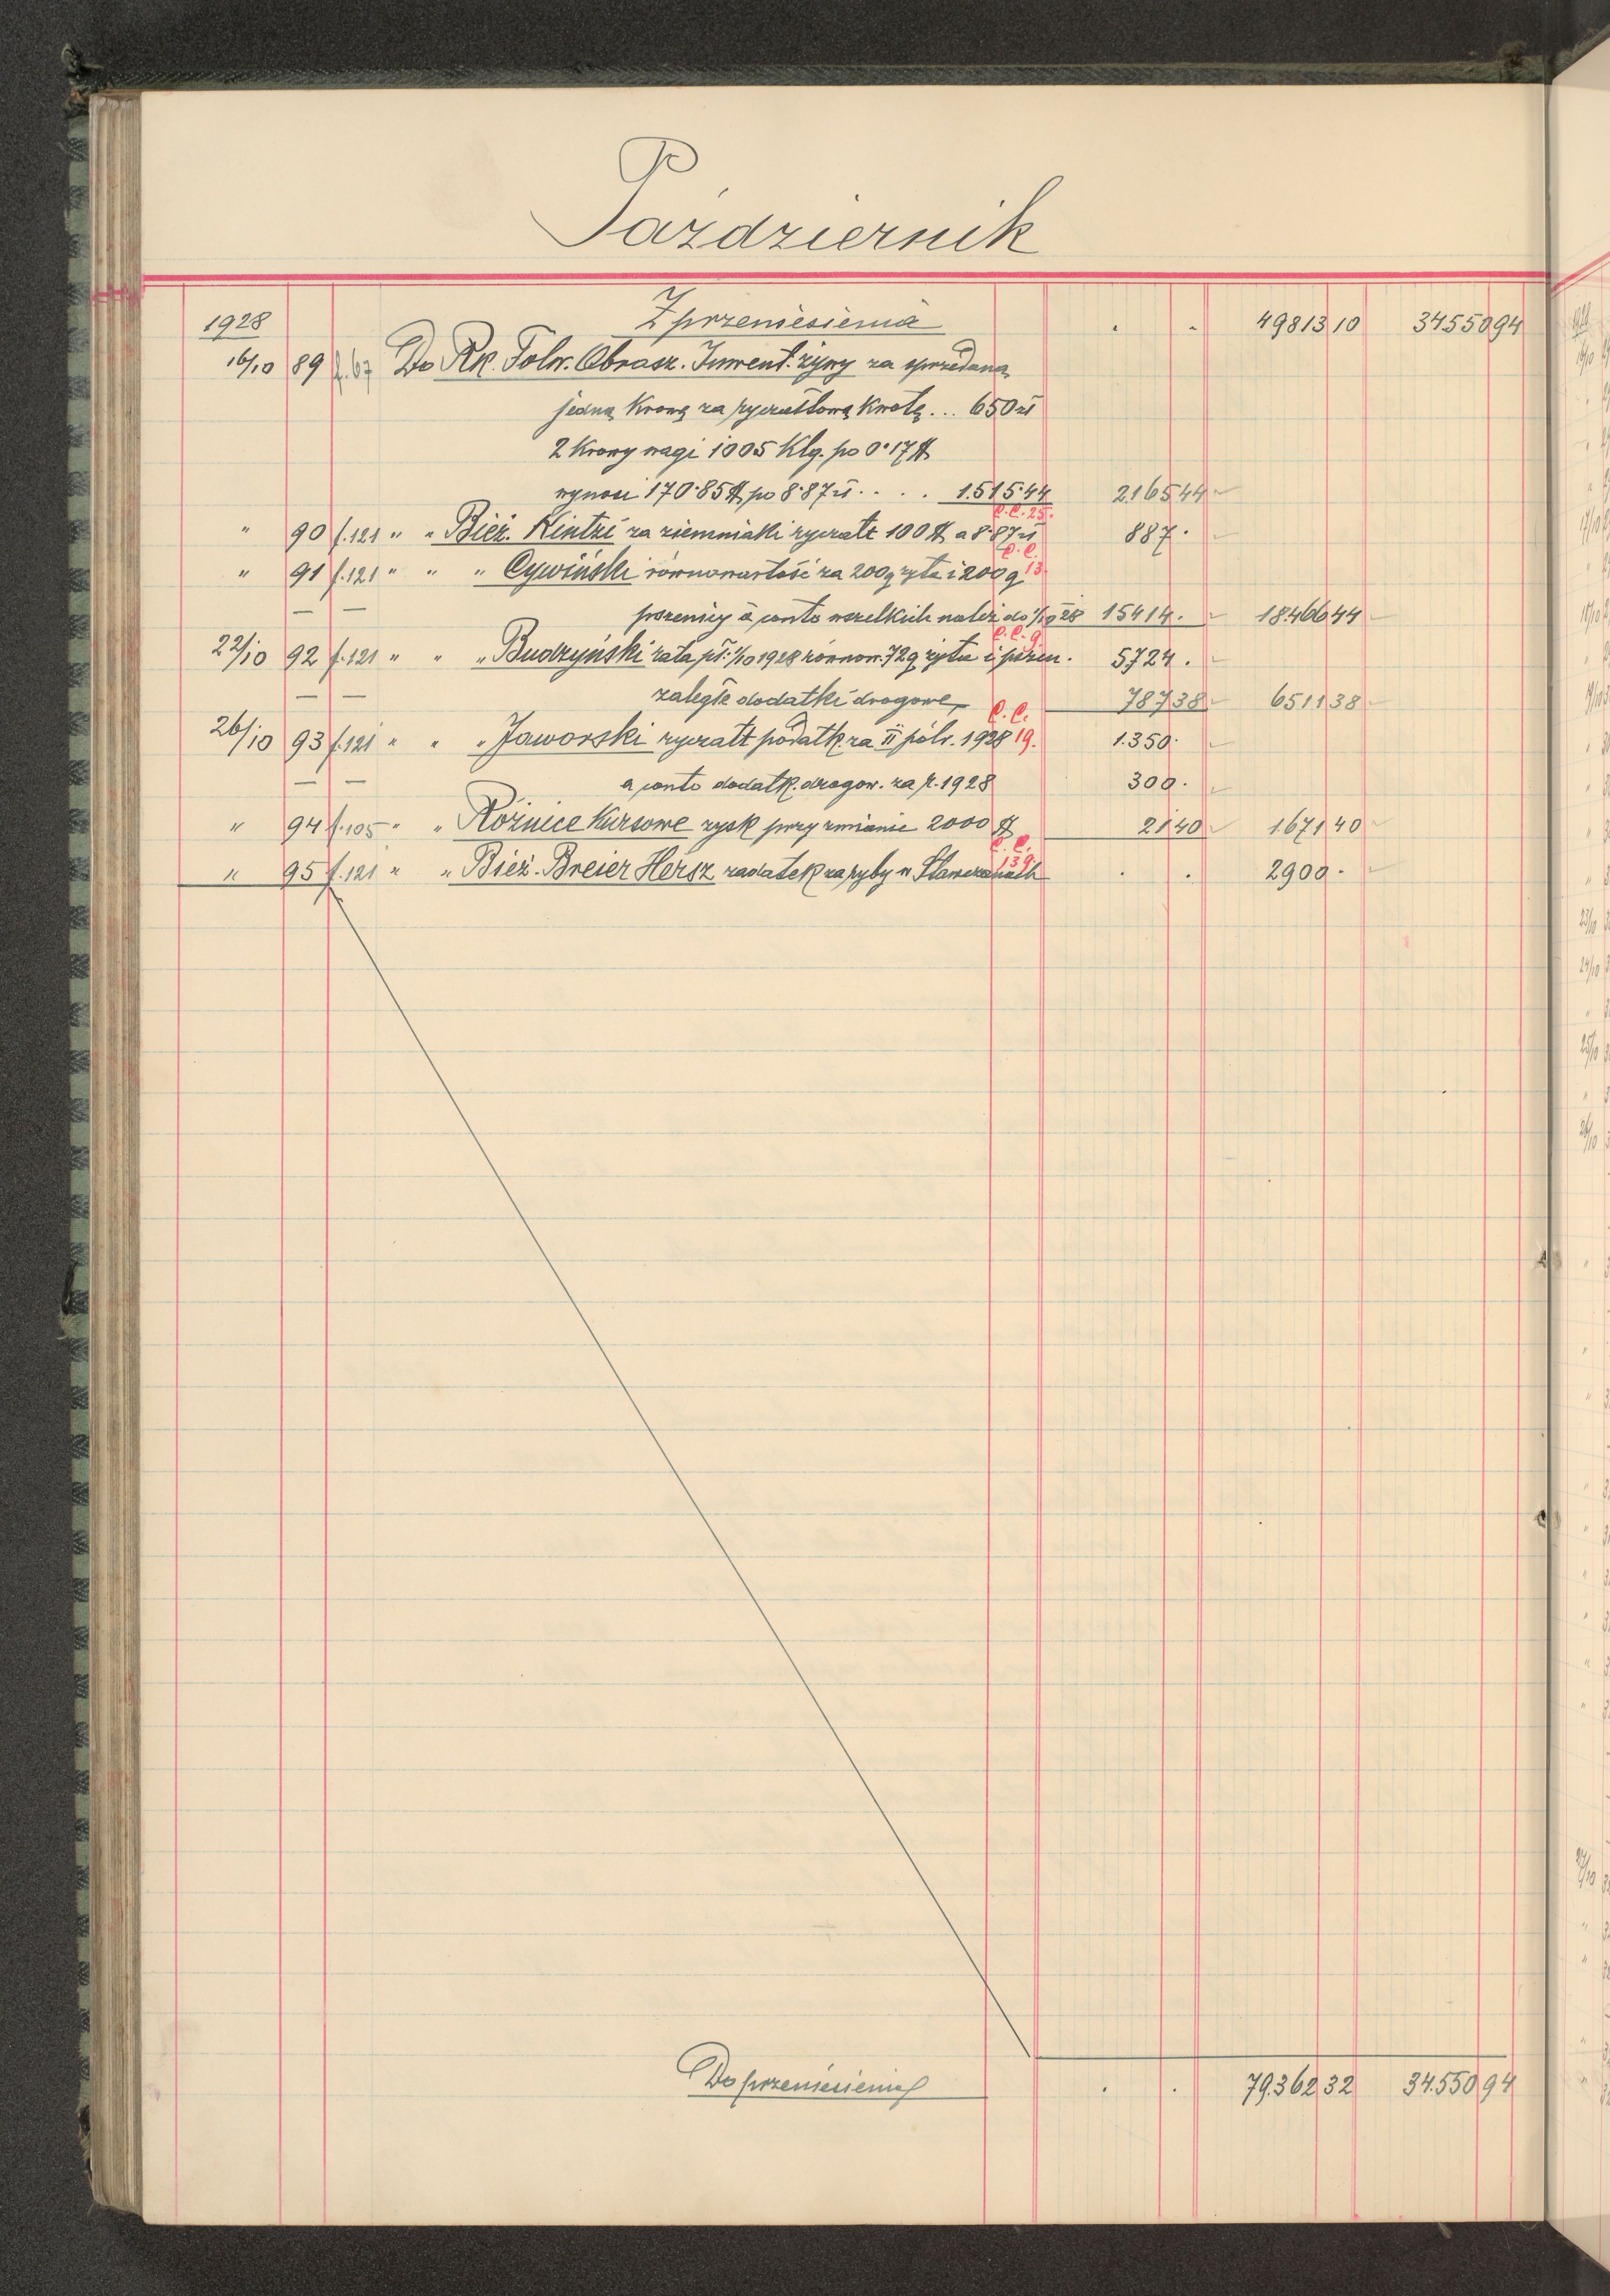 Październik
1928 Z przeniesienia . . 49813 10 34550 94
16/10 89 f.67 Do Rk. Folw. Obrasz. Inwent. żywy za sprzedaną
jedną krowę za ryczałtową kwotę... 650 zł
2 krowy wagi 1005 Klg. po 0.17 $
wynosi 170.85 $ po 8.87 zł . . . . 1.515.44 2.165 44
" 90 f.121 " " Bież. Kintzi za ziemniaki ryczałt 100 $ a 8.87 zł C.C. 25. 887 .
" 91 f.121 " " " Cywiński równowartość za 200 q żyta i 200 q C.C. 13
— — pszenicy à conto wszelkich należ. do 1/10 28 15414 . 18.466 44
22/10 92 f.121 " " " Budzyński rata pł. 1/10 1928 równow. 72 q żyta i pszen. C.C. 9 5724 .
— — zaległe dodatki drogowe, 787 38 6511 38
26/10 93 f.121 " " " Jaworski ryczałt podatk. za II półr. 1928 C.C. 19. 1.350 .
— — a conto dodatk. drogow. za r. 1928 300 .
" 94 f.105 " " Różnice Kursowe zysk przy zmianie 2000 $ 21 40 1.671 40
" 95 f.121 " " Bież. Breier Hersz zadatek za ryby w C.C. 139. . . 2900 .
Do przeniesienia . . 79.362 32 34.550 94